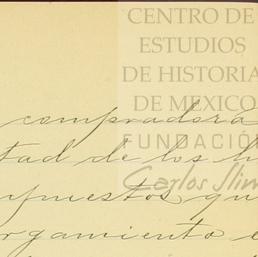 CENTRO DE
ESTUDIOS
DE HISTORIA
DE MEXICO
FUNDACIÓN
Carlos Slim
compradora
tad de los
puestos qu
rgamiento